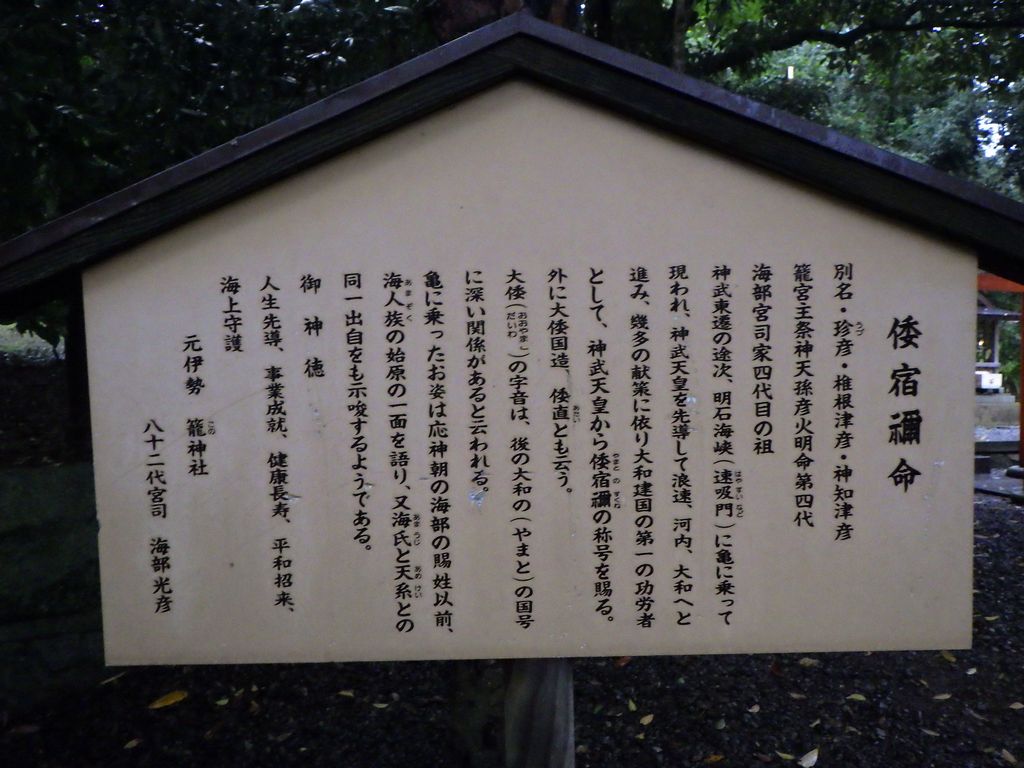 倭宿禰命
別名・珍彦・椎根津彦・神知津彦
籠宮主祭神天孫彦火明命第四代
海部宮司家四代目の祖
神武東遷の途次、明石海峡(速吸門)に亀に乗って
現われ、神武天皇を先導して浪速、河内、大和へと
進み、幾多の献策に依り大和建国の第一の功労者
として、神武天皇から倭宿禰の称号を賜る。
外に大倭国造、倭直とも云う。
大倭(おおやまと だいわ)の字音は、後の大和の(やまと)の国号
に深い関係があると云われる。
亀に乗ったお姿は応神朝の海部の賜姓以前、
海人族の始原の一面を語り、又海氏と天系との
同一出自をも示唆するようである。
御神徳
人生先導、事業成就、健康長寿、平和招来、
海上守護
元伊勢 籠神社
八十二代宮司 海部光彦